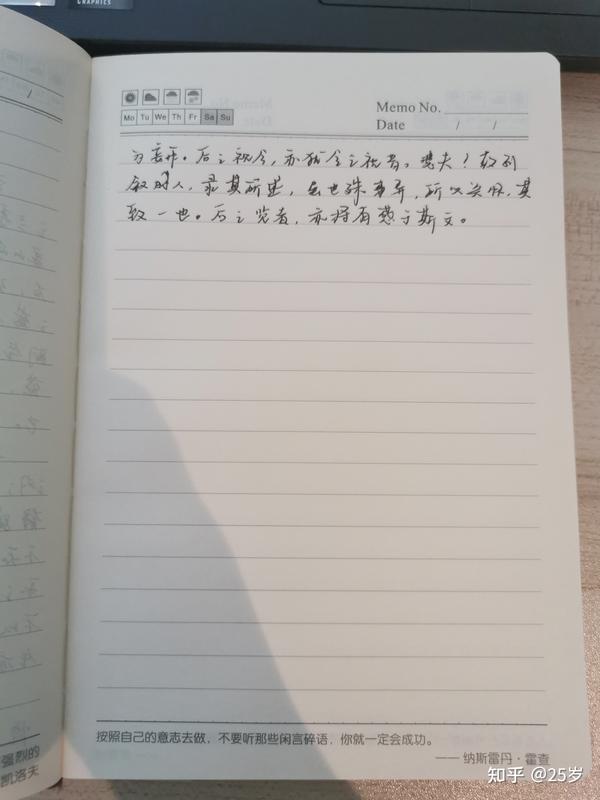 GRAPHICS
Mo Tu We Th Fr Sa Su
Memo No.
Date / /
为妄作。后之视今,亦犹今之视昔。悲夫!故列
叙时人,录其所述,虽世殊事异,所以兴怀,其
致一也。后之览者,亦将有感于斯文。
按照自己的意志去做,不要听那些闲言碎语,你就一定会成功。
—— 纳斯雷丹·霍查
强烈的
凯洛夫
知乎 @25岁